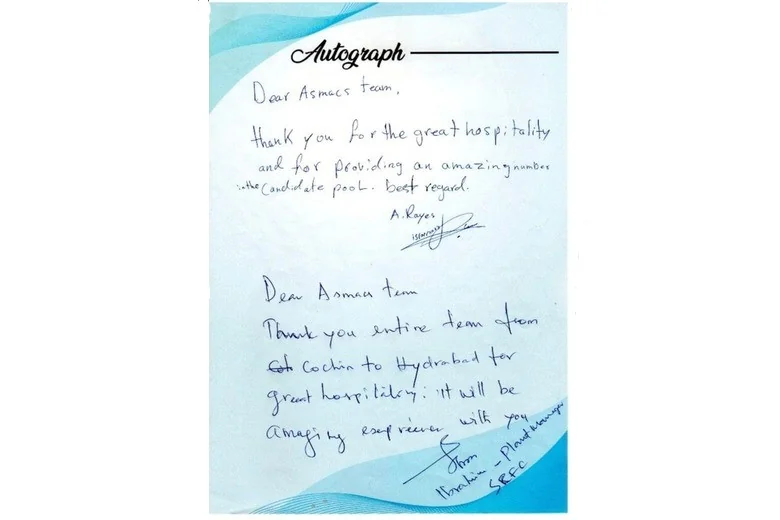 Autograph
Dear Asmacs team,
thank you for the great hospitality
and for providing an amazing number
in the Candidate pool. best regard.
A. Rayes
Dear Asmacs team
Thank you entire team from
Cochin to Hydrabad for
great hospitality: it will be
amaging with you
Ibrahim - Plant Manager
SRFC